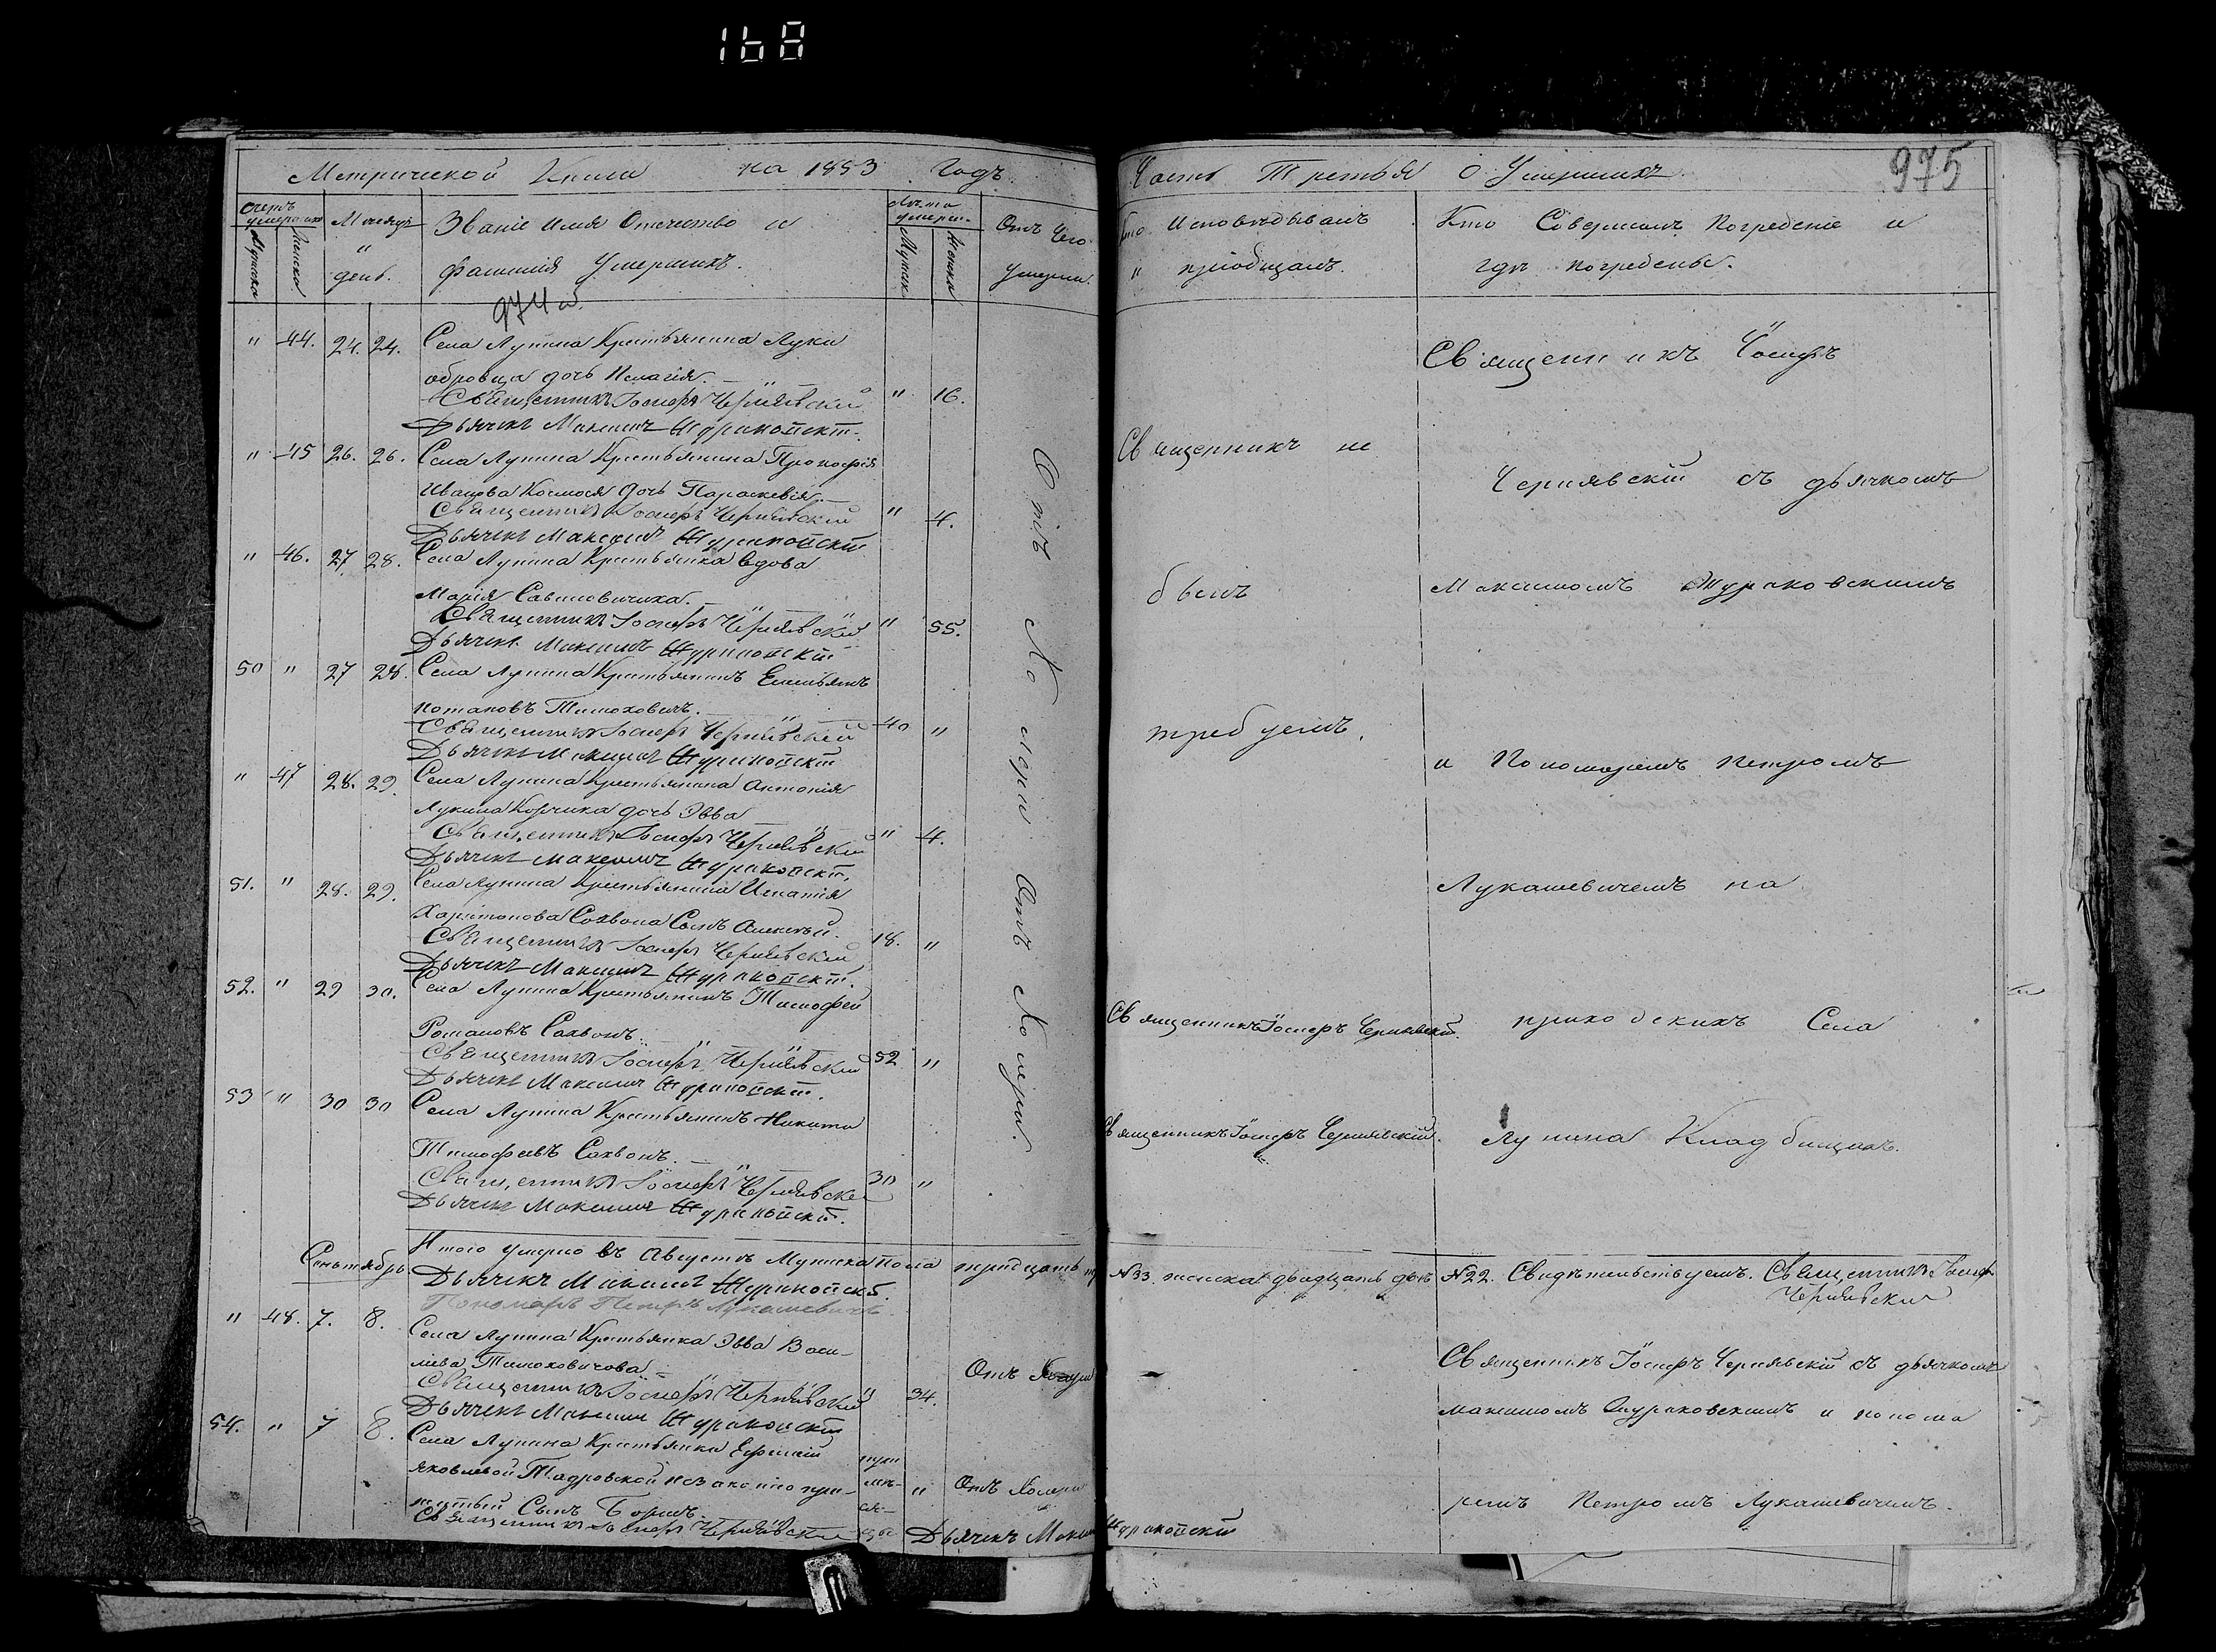 168
Метрической Книги на 1853 годъ
Часть Третья о Умершихъ
975
Счетъ умершихъ
Мужеска
Женска
Месяцъ
и
день.
Званіе Имя Отечество и
фамилія Умершихъ.
Лѣта умерш.
Мужск
Женска
Отъ Чего
Умерли.
Кто Исповѣдывалъ
и пріобщалъ.
Кто Совершалъ Погребеніе и
гдѣ погребены.
974 об.
" 44. 24. 24. Села Лунина Крестьянина Луки
дочь Пелагія.
Священникъ Іосифъ Чернявскій " 16.
Дьячекъ Максимъ Жураковскій.
" 45 26. 26. Села Лунина Крестьянина Прокофія
Иванова дочь Параскевія.
Священникъ Іосифъ Чернявскій " 4.
Дьячекъ Максимъ Жураковскій
" 46. 27. 28. Села Лунина Крестьянка вдова
Марія Савиновичиха.
Священникъ Іосифъ Чернявскій " 55.
Дьячекъ Максимъ Жураковскій
50 " 27 28. Села Лунина Крестьянинъ Емельянъ
Потаповъ Тимоховичъ.
Священникъ Іосифъ Чернявскій 40 "
Дьячекъ Максимъ Жураковскій
" 47 28. 29. Села Лунина Крестьянина Антонія
Лукина Корчика дочь Эвва
Священникъ Іосифъ Чернявскій " 4.
Дьячекъ Максимъ Жураковскій.
51. " 28. 29. Села Лунина Крестьянина Игнатія
Харитонова Сахвона Сынъ Алексѣй.
Священникъ Іосифъ Чернявскій 18. "
Дьячекъ Максимъ Жураковскій.
52. " 29 30. Села Лунина Крестьянинъ Тимофей
Романовъ Сахвонъ.
Священникъ Іосифъ Чернявскій 52 "
Дьячекъ Максимъ Жураковскій.
53 " 30 30 Села Лунина Крестьянинъ Никита
Тимофеевъ Сахвонъ.
Священникъ Іосифъ Чернявскій 30 "
Дьячекъ Максимъ Жураковскій.
Отъ Холеры Отъ Холеры.
Священникъ не
былъ
требуемъ.
Священникъ Іосифъ Чернявскій.
Священникъ Іосифъ Чернявскій.
Священникъ Іосифъ
Чернявскій съ дьячкомъ
Максимомъ Жураковскимъ
и Пономаремъ Петромъ
Лукашевичемъ на
приходскихъ Села
Лунина Кладбищахъ.
Итого умерло въ Августѣ Мужеска пола тридцать №33. женска двадцать два №22. Свидѣтельствуемъ. Священникъ Іосифъ
Чернявскій
Дьячекъ Максимъ Жураковскій.
Пономарь Петръ Лукашевичъ
Сентябрь
" 48. 7. 8. Села Лунина Крестьянка Эвва Васи-
лiева Тимоховичова
Священникъ Іосифъ Чернявскій " 34.
Дьячекъ Максимъ Жураковскій
Отъ Холеры
54. " 7 8. Села Лунина Крестьянки
Яковлевой незаконно при-
житый Сынъ Борисъ.
Священникъ Іосифъ Чернявскій
"
Отъ Холеры
Дьячекъ Максимъ Жураковскій
Священникъ Іосифъ Чернявскій съ дьячкомъ
Максимомъ Жураковскимъ и понома
ремъ Петромъ Лукашевичемъ.